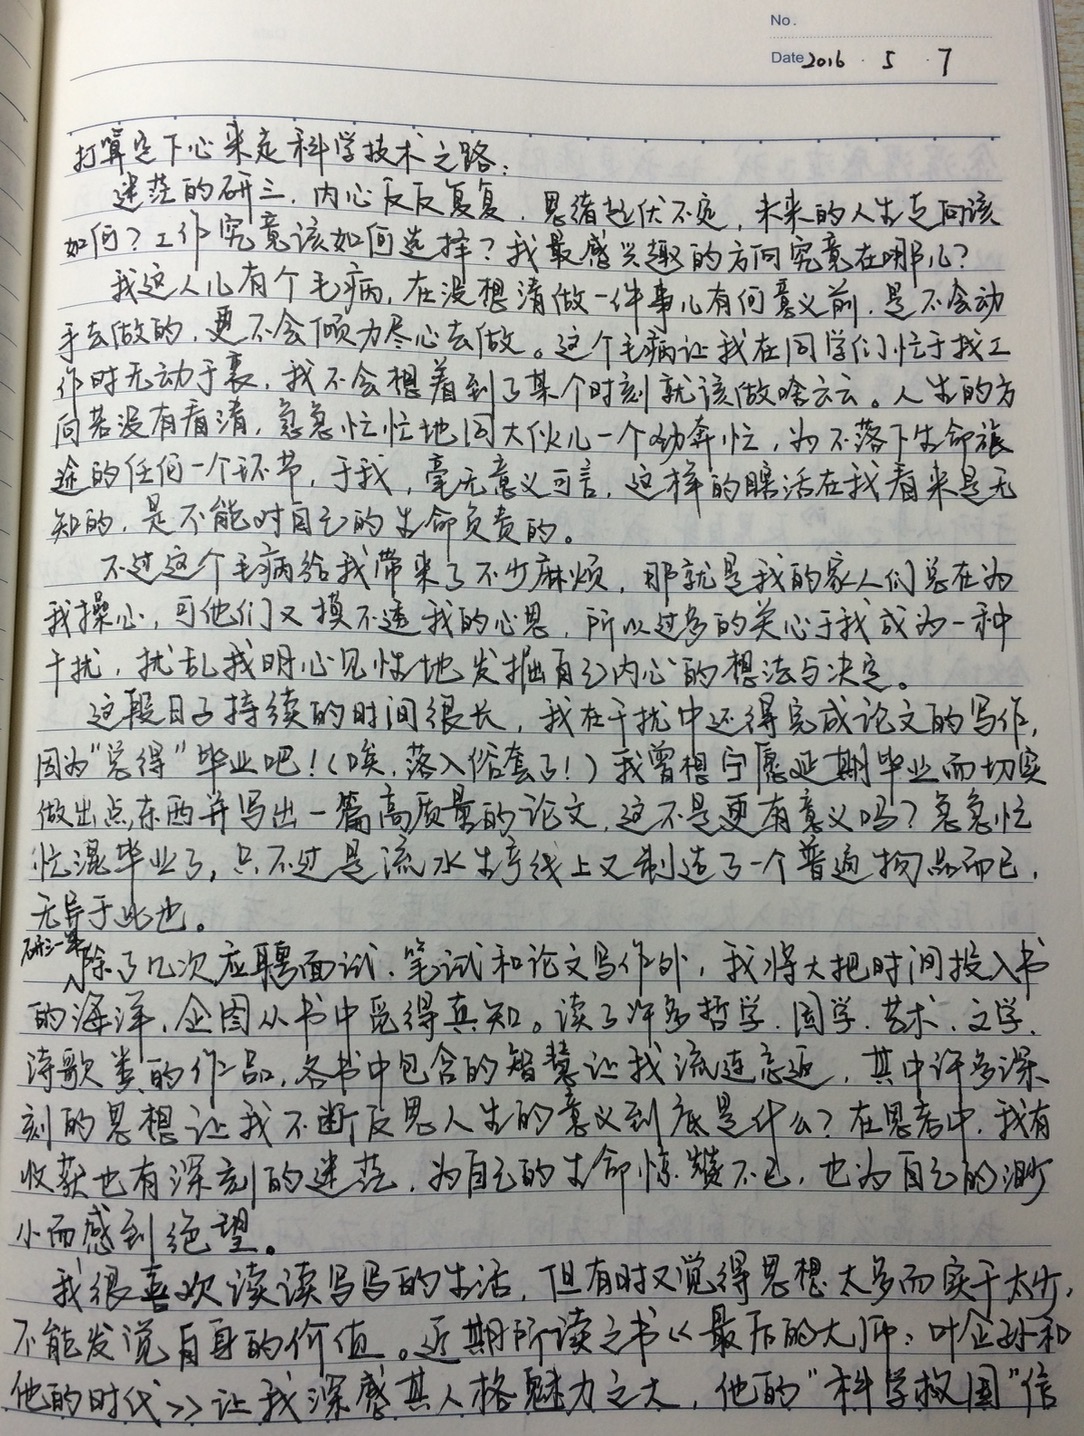 No.
Date 2016 · 5 · 7
打算定下心来走科学技术之路：
迷茫的研三，内心反反复复，思绪起伏不定，未来的人生走向该
如何？工作究竟该如何选择？我最感兴趣的方向究竟在哪儿？
我这人儿有个毛病，在没想清做一件事儿有何意义前，是不会动
手去做的，更不会倾力尽心去做。这个毛病让我在同学们忙于找工
作时无动于衷，我不会想着到了某个时刻就该做啥云云。人生的方
向若没有看清，急急忙忙地同大伙儿一个劲奔忙，为不落下生命旅
途的任何一个环节，于我，毫无意义可言，这样的瞎活在我看来是无
知的，是不能对自己的生命负责的。
不过这个毛病给我带来了不少麻烦，那就是我的家人们总在为
我操心，可他们又摸不透我的心思，所以过多的关心于我成为一种
干扰，扰乱我明心见性地发掘自己内心的想法与决定。
这段日子持续的时间很长，我在干扰中还得完成论文的写作，
因为“总得”毕业吧！（唉，落入俗套了！）我曾想宁愿延期毕业而切实
做出点东西并写出一篇高质量的论文，这不是更有意义吗？急急忙
忙混毕业了，只不过是流水生产线上又制造了一个普通物品而已，
无异于此也。
研三一年
除了几次应聘面试、笔试和论文写作外，我将大把时间投入书
的海洋，企图从书中觅得真知。读了许多哲学、国学、艺术、文学、
诗歌类的作品，各书中包含的智慧让我流连忘返，其中许多深
刻的思想让我不断反思人生的意义到底是什么？在思考中，我有
收获也有深刻的迷茫，为自己的生命惊赞不已，也为自己的渺
小而感到绝望。
我很喜欢读读写写的生活，但有时又觉得思想太多而实干太少，
不能发觉自身的价值。近期所读之书《最后的大师：叶企孙和
他的时代》让我深感其人格魅力之大，他的“科学救国”信